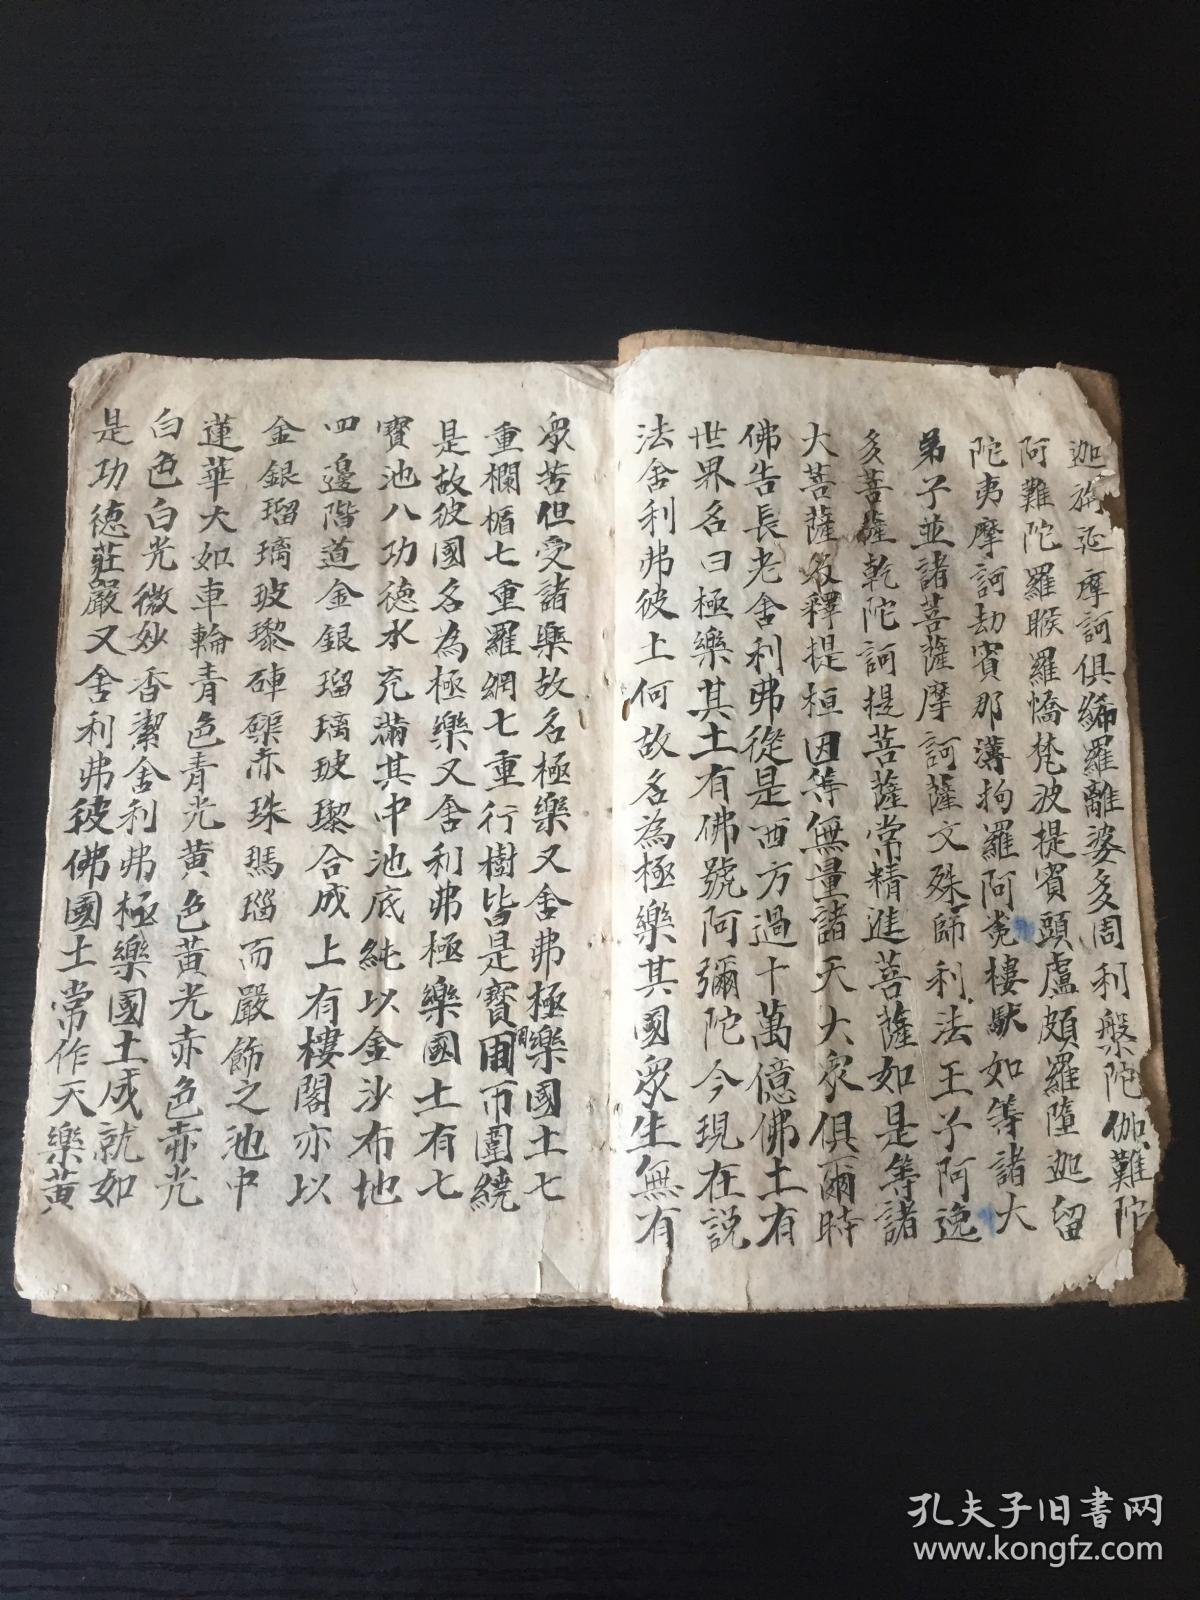 迦旃延摩訶俱絺羅離婆多周利槃陀伽難陀
阿難陀羅睺羅憍梵波提賓頭盧頗羅墮迦留
陀夷摩訶劫賓那薄拘羅阿㝹樓馱如等諸大
弟子並諸菩薩摩訶薩文殊師利法王子阿逸
多菩薩乾陀訶提菩薩常精進菩薩如是等諸
大菩薩及釋提桓因等無量諸天大衆俱爾時
佛告長老舍利弗從是西方過十萬億佛土有
世界名曰極樂其土有佛號阿彌陀今現在説
法舍利弗彼土何故名為極樂其國衆生無有
衆苦但受諸樂故名極樂又舍弗極樂國土七
重欄楯七重羅網七重行樹皆是寳周帀圍繞
是故彼國名為極樂又舍利弗極樂國土有七
寳池八功德水充滿其中池底純以金沙布地
四邊階道金銀瑠璃玻瓈合成上有樓閣亦以
金銀瑠璃玻瓈硨磲赤珠瑪瑙而嚴飾之池中
蓮華大如車輪青色青光黄色黄光赤色赤光
白色白光微妙香潔舍利弗極樂國土成就如
是功德莊嚴又舍利弗彼佛國土常作天樂黄
孔夫子旧书网
www.kongfz.com